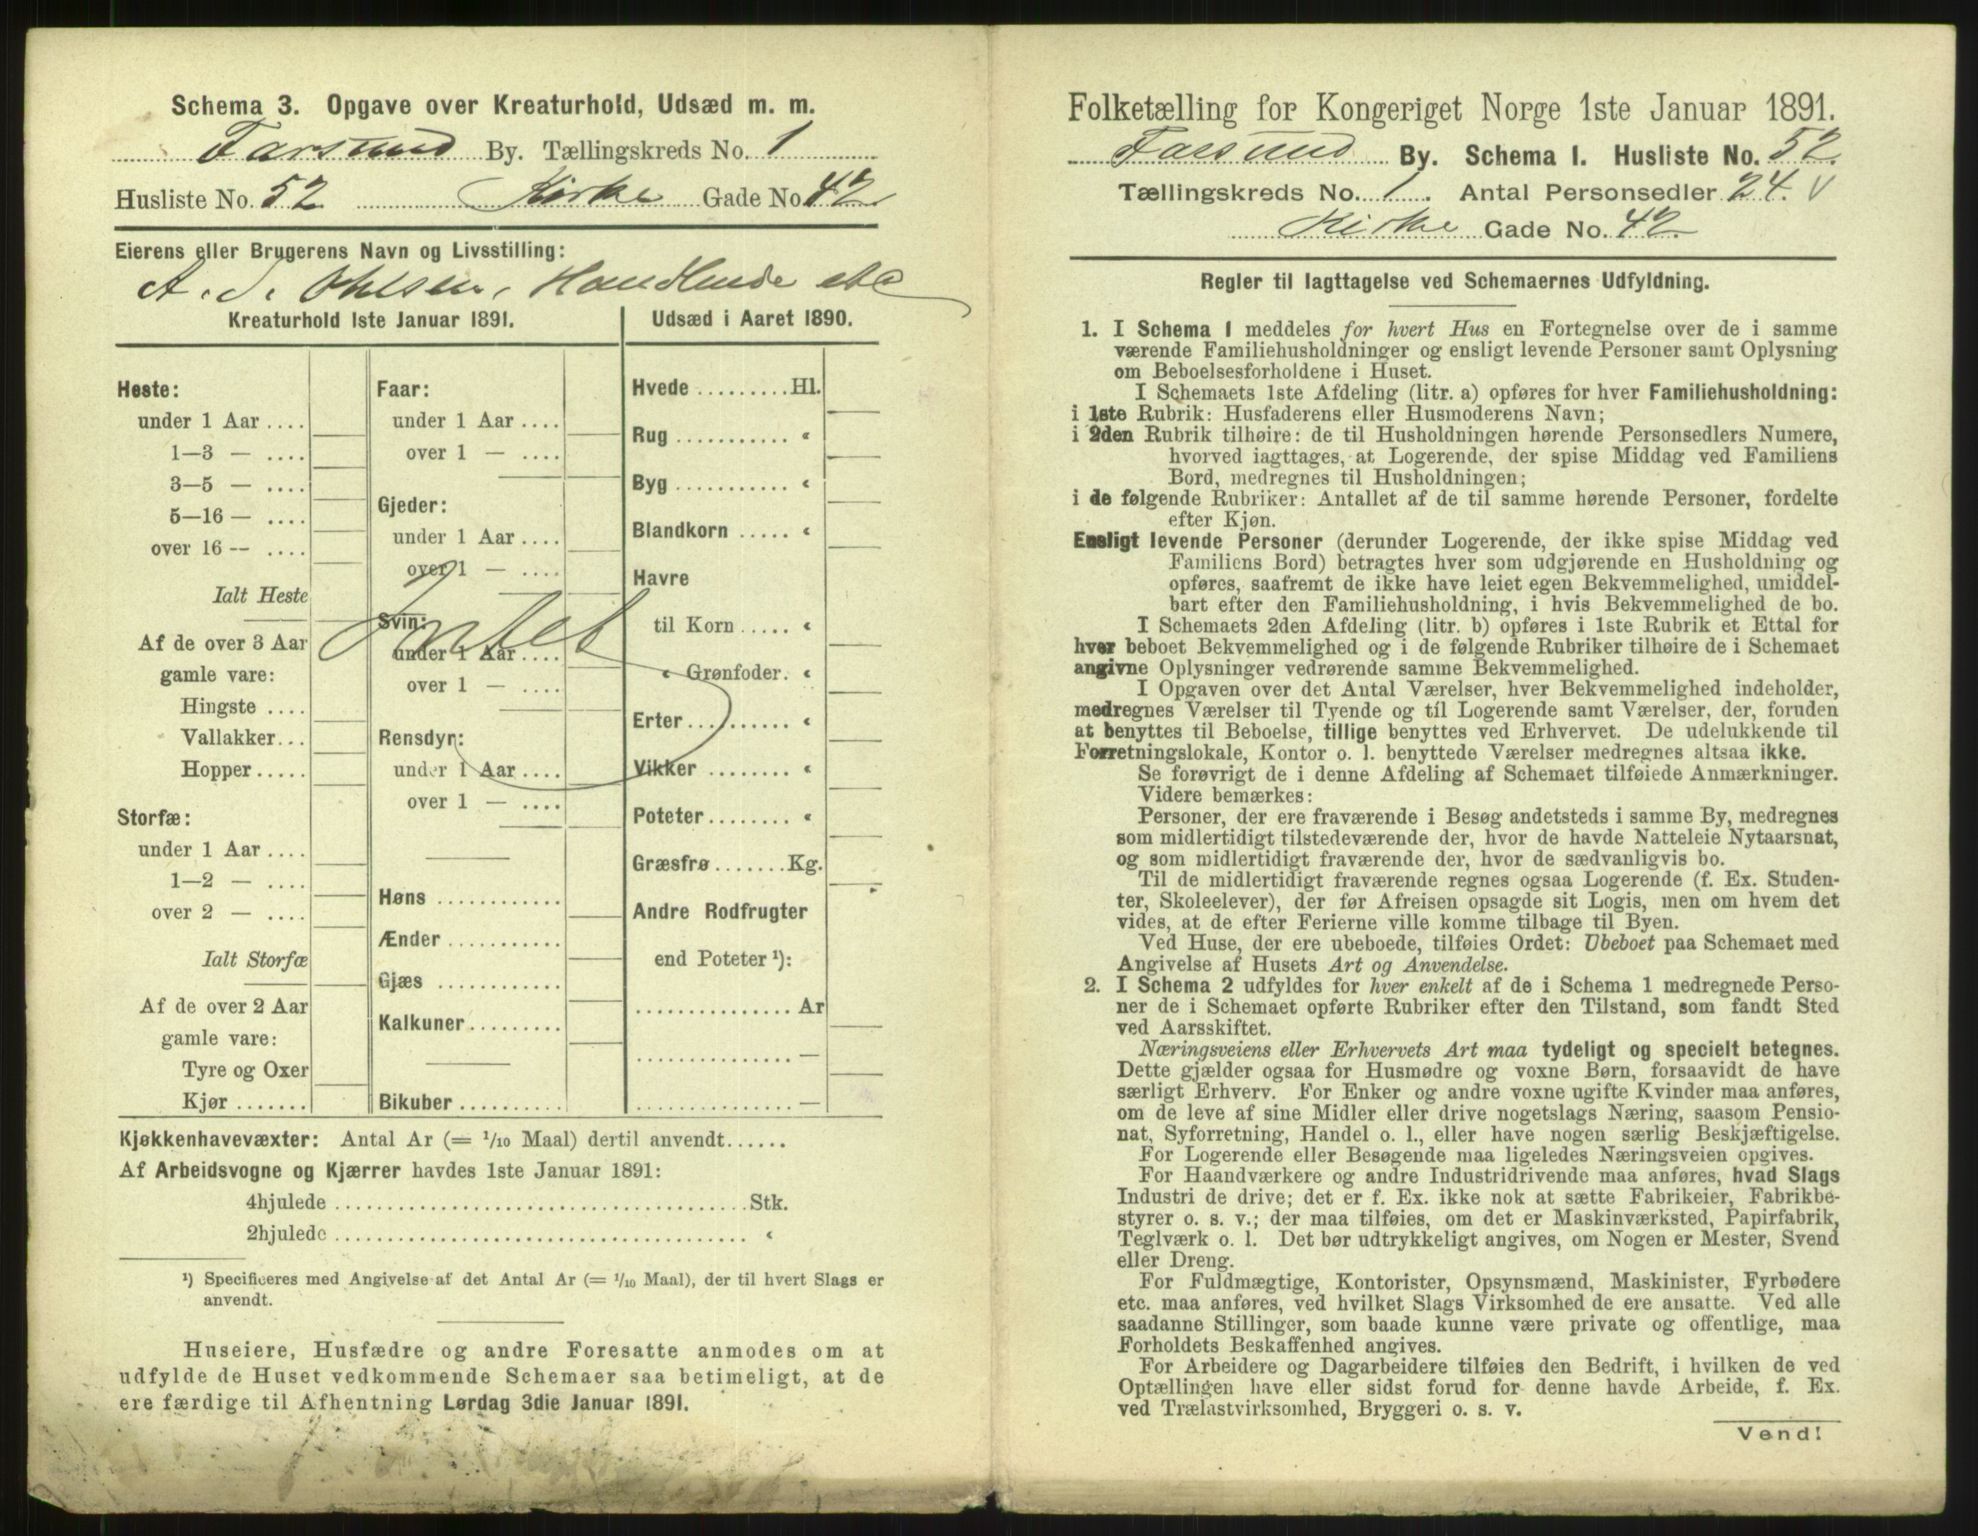 Schema 3. Opgave over Kreaturhold, Udsæd m. m.
Farsund By. Tællingskreds No. 1
Husliste No. 52 Kirke Gade No 42
Eierens eller Brugerens Navn og Livsstilling:
A. S. Ohlsen, Handlende etc
Kreaturhold 1ste Januar 1891.
Heste:
under 1 Aar ....
1—3 — ....
3—5 — ....
5—16 — ....
over 16 -- ....
Ialt Heste
Af de over 3 Aar
gamle vare:
Hingste ....
Vallakker...
Hopper.....
Storfæ:
under 1 Aar ....
1—2 — ....
over 2 — ....
Ialt Storfæ
Af de over 2 Aar
gamle vare:
Tyre og Oxer
Kjør .......
Faar:
under 1 Aar ....
over 1 — ....
Gjeder:
under 1 Aar ....
over 1 — ....
Intet
Svin:
under 1 Aar ....
over 1 — ....
Rensdyr:
under 1 Aar ....
over 1 — ....
Høns ............
Ænder ...........
Gjæs ............
Kalkuner.........
Bikuber ..........
Udsæd i Aaret 1890.
Hvede .........Hl.
Rug ........... «
Byg ........... «
Blandkorn ..... «
Havre
til Korn ..... «
« Grønfoder. «
Erter.......... «
Vikker ........ «
Poteter........ «
Græsfrø .......Kg.
Andre Rodfrugter
end Poteter ¹):
............... Ar
............... —
............... —
Kjøkkenhavevæxter: Antal Ar (= 1/10 Maal) dertil anvendt......
Af Arbeidsvogne og Kjærrer havdes 1ste Januar 1891:
4hjulede .......................................Stk.
2hjulede ....................................... «
¹) Specificeres med Angivelse af det Antal Ar (= 1/10 Maal), der til hvert Slags er
anvendt.
Huseiere, Husfædre og andre Foresatte anmodes om at
udfylde de Huset vedkommende Schemaer saa betimeligt, at de
ere færdige til Afhentning Lørdag 3die Januar 1891.
Folketælling for Kongeriget Norge 1ste Januar 1891.
Farsund By. Schema I. Husliste No. 52.
Tællingskreds No. 1. Antal Personsedler 24. V
Kirke Gade No. 42.
Regler til Iagttagelse ved Schemaernes Udfyldning.
1. I Schema 1 meddeles for hvert Hus en Fortegnelse over de i samme
værende Familiehusholdninger og ensligt levende Personer samt Oplysning
om Beboelsesforholdene i Huset.
I Schemaets 1ste Afdeling (litr. a) opføres for hver Familiehusholdning:
i 1ste Rubrik: Husfaderens eller Husmoderens Navn;
i 2den Rubrik tilhøire: de til Husholdningen hørende Personsedlers Numere,
hvorved iagttages, at Logerende, der spise Middag ved Familiens
Bord, medregnes til Husholdningen;
i de følgende Rubriker: Antallet af de til samme hørende Personer, fordelte
efter Kjøn.
Ensligt levende Personer (derunder Logerende, der ikke spise Middag ved
Familiens Bord) betragtes hver som udgjørende en Husholdning og
opføres, saafremt de ikke have leiet egen Bekvemmelighed, umiddel-
bart efter den Familiehusholdning, i hvis Bekvemmelighed de bo.
I Schemaets 2den Afdeling (litr. b) opføres i 1ste Rubrik et Ettal for
hver beboet Bekvemmelighed og i de følgende Rubriker tilhøire de i Schemaet
angivne Oplysninger vedrørende samme Bekvemmelighed.
I Opgaven over det Antal Værelser, hver Bekvemmelighed indeholder,
medregnes Værelser til Tyende og til Logerende samt Værelser, der, foruden
at benyttes til Beboelse, tillige benyttes ved Erhvervet. De udelukkende til
Forretningslokale, Kontor o. l. benyttede Værelser medregnes altsaa ikke.
Se forøvrigt de i denne Afdeling af Schemaet tilføiede Anmærkninger.
Videre bemærkes:
Personer, der ere fraværende i Besøg andetsteds i samme By, medregnes
som midlertidigt tilstedeværende der, hvor de havde Natteleie Nytaarsnat,
og som midlertidigt fraværende der, hvor de sædvanligvis bo.
Til de midlertidigt fraværende regnes ogsaa Logerende (f. Ex. Studen-
ter, Skoleelever), der før Afreisen opsagde sit Logis, men om hvem det
vides, at de efter Ferierne ville komme tilbage til Byen.
Ved Huse, der ere ubeboede, tilføies Ordet: Ubeboet paa Schemaet med
Angivelse af Husets Art og Anvendelse.
2. I Schema 2 udfyldes for hver enkelt af de i Schema 1 medregnede Perso-
ner de i Schemaet opførte Rubriker efter den Tilstand, som fandt Sted
ved Aarsskiftet.
Næringsveiens eller Erhvervets Art maa tydeligt og specielt betegnes.
Dette gjælder ogsaa for Husmødre og voxne Børn, forsaavidt de have
særligt Erhverv. For Enker og andre voxne ugifte Kvinder maa anføres,
om de leve af sine Midler eller drive nogetslags Næring, saasom Pensio-
nat, Syforretning, Handel o. l., eller have nogen særlig Beskjæftigelse.
For Logerende eller Besøgende maa ligeledes Næringsveien opgives.
For Haandværkere og andre Industridrivende maa anføres, hvad Slags
Industri de drive; det er f. Ex. ikke nok at sætte Fabrikeier, Fabrikbe-
styrer o. s. v.; der maa tilføies, om det er Maskinværksted, Papirfabrik,
Teglværk o. l. Det bør udtrykkeligt angives, om Nogen er Mester, Svend
eller Dreng.
For Fuldmægtige, Kontorister, Opsynsmænd, Maskinister, Fyrbødere
etc. maa anføres, ved hvilket Slags Virksomhed de ere ansatte. Ved alle
saadanne Stillinger, som baade kunne være private og offentlige, maa
Forholdets Beskaffenhed angives.
For Arbeidere og Dagarbeidere tilføies den Bedrift, i hvilken de ved
Optællingen have eller sidst forud for denne havde Arbeide, f. Ex.
ved Trælastvirksomhed, Bryggeri o. s. v.
Vend!